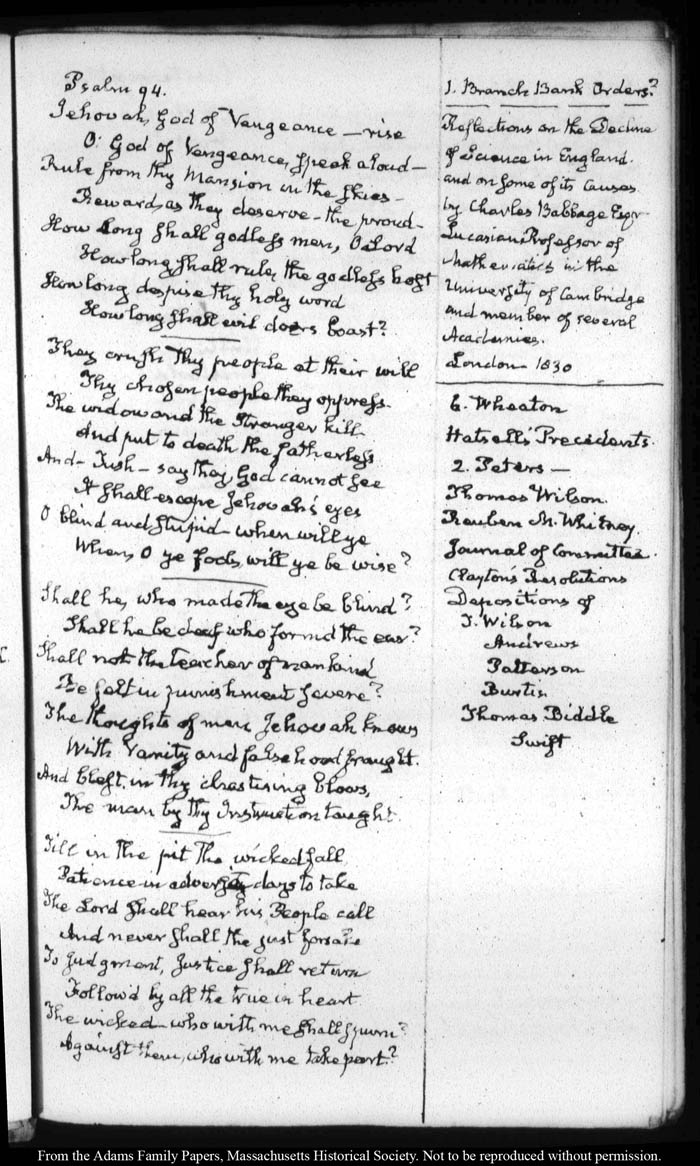 Psalm 94.
Jehovah, God of Vengeance — rise
O! God of Vengeance, speak aloud —
Rule from thy Mansion in the skies —
Reward, as they deserve — the proud —
How Long shall godless men, O Lord
How long shall rule, the godless host
How long despise thy holy word
How long shall evil doers boast?
They crush thy people at their will
Thy chosen people they oppress.
The widow and the Stranger kill
And put to death the fatherless
And — Tush — say they, God cannot see
It shall escape Jehovah's eyes
O blind and stupid — when will ye
When, O ye fools, will ye be wise?
Shall he, who made the eye be blind?
Shall he be deaf who form'd the ear?
Shall not the teacher of mankind
Be felt in punishment severe?
The thoughts of man Jehovah knows
With Vanity and falsehood fraught.
And blest, in thy chastising blows,
The man by thy Instruction taught.
Till in the pit the wicked fall
Patience in adversity days to take
The Lord shall hear his People call
And never shall the just forsake
To Judgment, Justice shall return
Follow'd by all the true in heart
The wicked — who with me shall spurn?
Against them, who with me take part?
1. Branch Bank Orders?
Reflections on the Decline
of Science in England.
and on some of its Causes
by Charles Babbage Esqr
Lucasian Professor of
Mathematics in the
University of Cambridge
and member of several
Academies.
London 1830
6. Wheaton
Hatsell's Precedents.
2. Peters —
Thomas Wilson.
Reuben M. Whitney.
Journal of Committee.
Clayton's Resolutions
Depositions of
J. Wilson
Andrews
Patterson
Burtis
Thomas Biddle
Swift
From the Adams Family Papers, Massachusetts Historical Society. Not to be reproduced without permission.